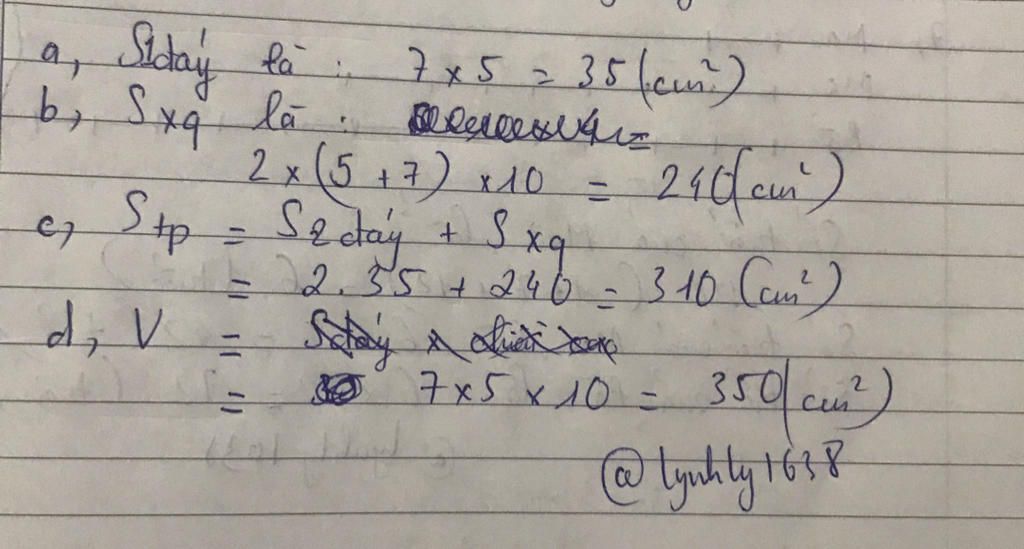 a, S1đáy là : 7 x 5 = 35 (cm²)
b, Sxq là :
2 x (5 + 7) x 10 = 240 (cm²)
c, Stp = S2đáy + Sxq
= 2.35 + 240 = 310 (cm²)
d, V = Sđáy x chiều cao
= 7 x 5 x 10 = 350 (cm²)
@lynhly1638